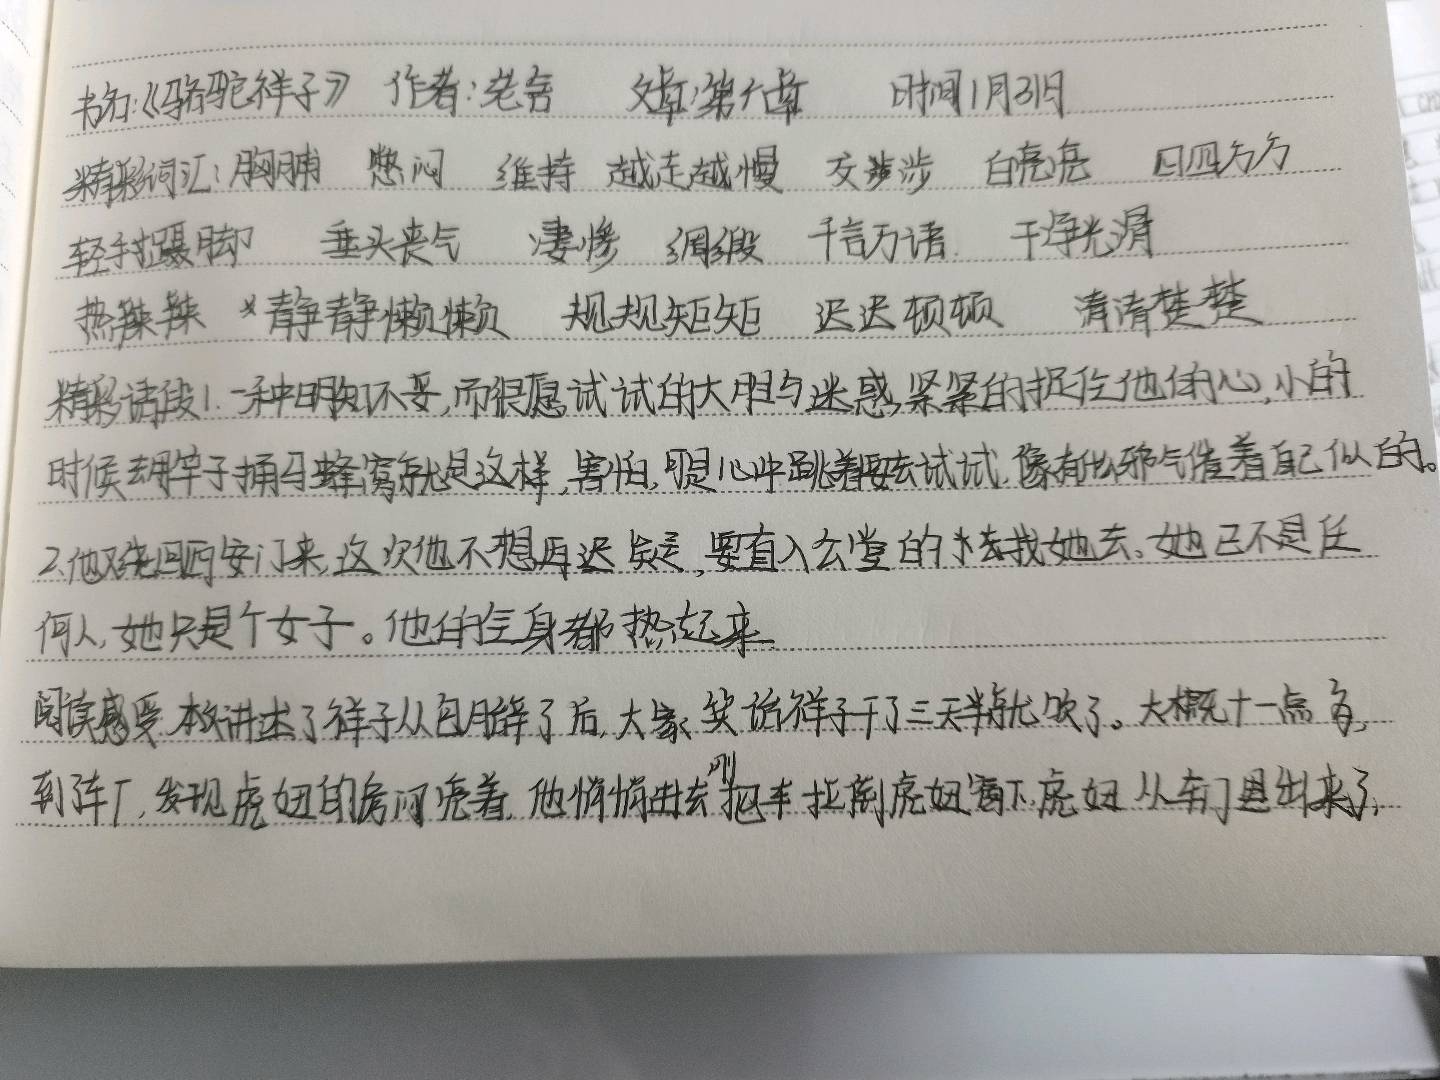 书名:《骆驼祥子》 作者:老舍 文章:第六章 时间1月31日
精彩词汇:胸脯 憋闷 维持 越走越慢 交涉涉 白亮亮 四四方方
轻手摄脚 垂头丧气 凄惨 绸缎 千言万语 干净光滑
热辣辣 静静懒懒 规规矩矩 迟迟顿顿 清清楚楚
精彩语段1.一种明知不妥,而很愿试试的大胆与迷惑,紧紧的捉住他的心,小的
时候去用竿子捅马蜂窝就是这样,害怕,可是心中跳着要去试试,像有什么邪气催着自己似的。
2.他又绕回西安门来,这次他不想再迟疑,要直入公堂的去找她去。她已不是任
何人,她只是个女子。他的全身都热起来.
阅读感受 本章讲述了祥子从包月辞了后,大家笑话祥子干了三天半就吹了。大概十一点多,
到车厂,发现虎妞的房间亮着,他悄悄进去刚把车拉到虎妞窗下,虎妞从车门里出来了,